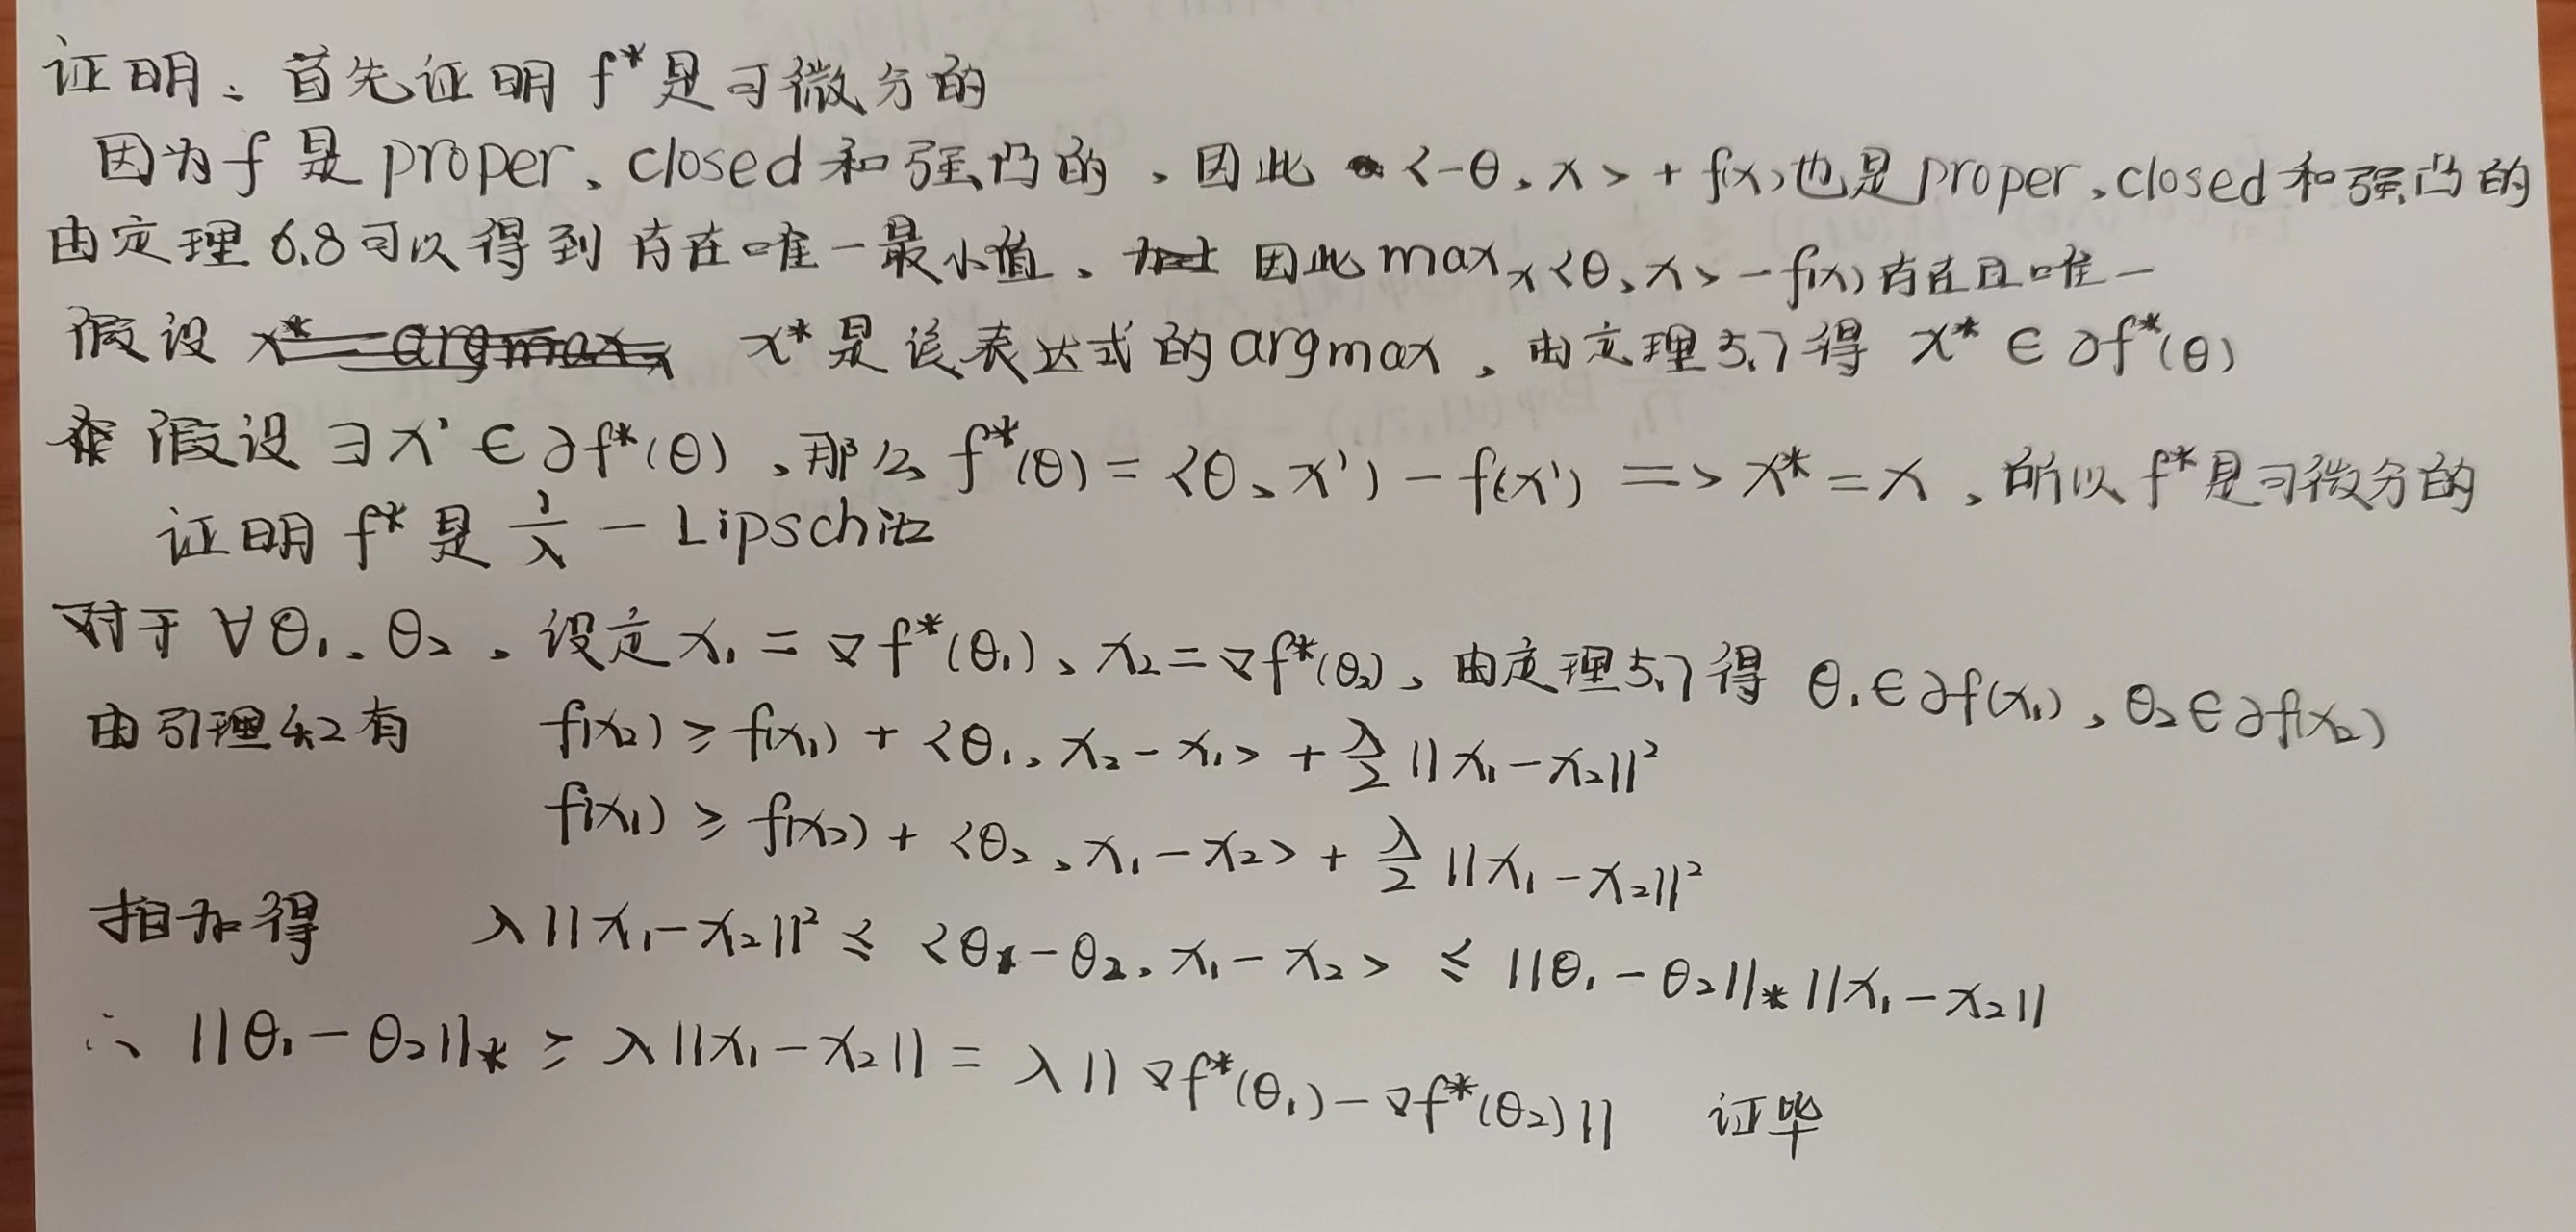 证明：首先证明 f* 是可微分的
因为 f 是 proper、closed 和强凸的，因此 <-θ, x> + f(x) 也是 proper、closed 和强凸的
由定理 6.8 可以得到存在唯一最小值，因此 max_x <θ, x> - f(x) 存在且唯一
假设 x* 是该表达式的 argmax，由定理 5.7 得 x* ∈ ∂f*(θ)
假设 ∃x' ∈ ∂f*(θ)，那么 f*(θ) = <θ, x') - f(x') => x* = x，所以 f* 是可微分的
证明 f* 是 1/λ - Lipschitz
对于 ∀θ₁、θ₂，设定 x₁ = ∇f*(θ₁)、x₂ = ∇f*(θ₂)，由定理 5.7 得 θ₁ ∈ ∂f(x₁)，θ₂ ∈ ∂f(x₂)
由引理 4.2 有 f(x₂) ≥ f(x₁) + <θ₁, x₂ - x₁> + λ/2 ||x₁ - x₂||²
f(x₁) ≥ f(x₂) + <θ₂, x₁ - x₂> + λ/2 ||x₁ - x₂||²
相加得 λ||x₁ - x₂||² ≤ <θ₁ - θ₂, x₁ - x₂> ≤ ||θ₁ - θ₂||* ||x₁ - x₂||
∴ ||θ₁ - θ₂||* ≥ λ||x₁ - x₂|| = λ||∇f*(θ₁) - ∇f*(θ₂)|| 证毕